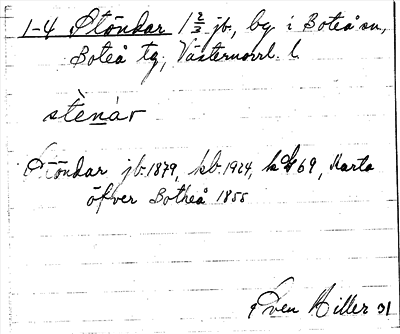 1-4 Stöndar 1 2/3 jb, by i Boteå sn,
Boteå tg, Västernorrl. l.
stènár
Stöndar jb. 1879, kb. 1924, 69, Karta
öfver Botheå 1855
Sven Hiller 31